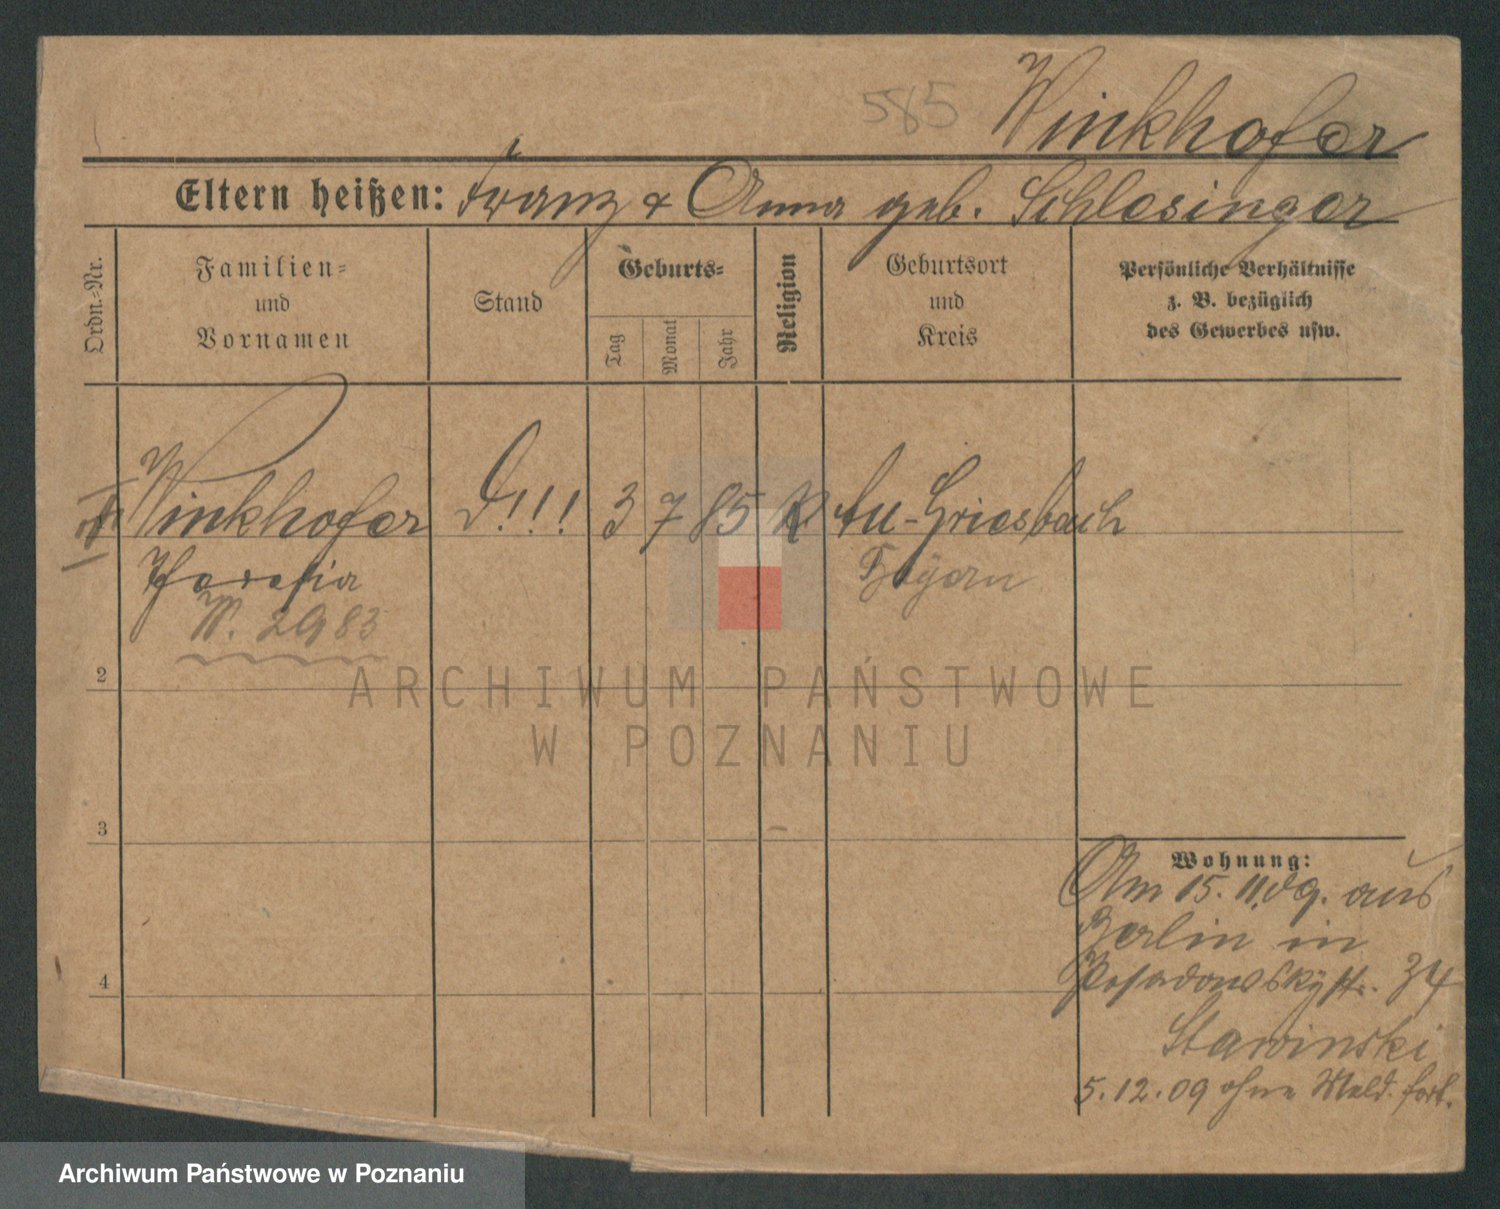 585 Winkhofer
Eltern heißen: Franz & Anna geb. Schlesinger
Ordn.-Nr.
Familien-
und
Vornamen
Stand
Geburts-
Tag
Monat
Jahr
Religion
Geburtsort
und
Kreis
Persönliche Verhältnisse
z. B. bezüglich
des Gewerbes usw.
Winkhofer D!!! 3 7 85 K Au-Griesbach
Theresia Bayern
W. 2983
2
ARCHIWUM PAŃSTWOWE
W POZNANIU
3
4
Wohnung:
Am 15.11.09. aus
Berlin in
Posadowskystr. 34
Stawinski
5.12.09 ohne Meld. fort.
Archiwum Państwowe w Poznaniu